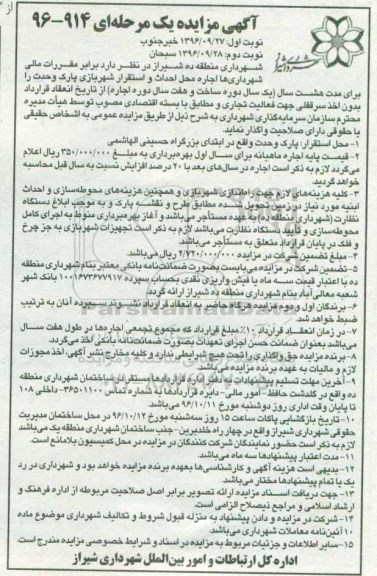 آگهی مزایده یک مرحله‌ای ۹۱۴-۹۶
نوبت اول: ۱۳۹۶/۰۹/۲۷ خبرجنوب
نوبت دوم: ۱۳۹۶/۰۹/۲۸ سبحان
شهرداری منطقه ده شیراز در نظر دارد برابر مقررات مالی
شهرداری‌ها اجاره محل احداث و استقرار شهربازی پارک وحدت را
برای مدت هشت سال (یک سال دوره ساخت و هفت سال دوره اجاره) از تاریخ انعقاد قرارداد
بدون اخذ سرقفلی جهت فعالیت تجاری و مطابق با بسته اقتصادی مصوب توسط هیأت مدیره
محترم سازمان سرمایه‌گذاری شهرداری به شرح ذیل از طریق مزایده عمومی به اشخاص حقیقی
یا حقوقی دارای صلاحیت واگذار نماید.
۱- محل استقرار: پارک وحدت واقع در ابتدای بزرگراه حسینی الهاشمی
۲- قیمت پایه اجاره ماهیانه برای سال اول بهره‌برداری به مبلغ ۳۵۰/۰۰۰/۰۰۰ ریال اعلام
می‌گردد لازم به ذکر است اجاره در سال‌های بعد با ۲۰ درصد افزایش نسبت به سال قبل محاسبه
خواهد گردید.
۳- کلیه هزینه‌های لازم جهت راه‌اندازی شهربازی و همچنین هزینه‌های محوطه‌سازی و احداث
ابنیه مورد نیاز در زمین تحویل شده مطابق طرح و نقشه پارک و به موجب ابلاغ دستگاه
نظارت (شهرداری منطقه ده) به عهده مستأجر می‌باشد و آغاز بهره‌برداری منوط به اجرای کامل
محوطه‌سازی و تأیید دستگاه نظارت می‌باشد لازم به ذکر است تجهیزات شهربازی به جز چرخ
و فلک در پایان قرارداد متعلق به مستأجر می‌باشد.
۴- مبلغ تضمین شرکت در مزایده ۲/۷۲۰/۰۰۰/۰۰۰ ریال می‌باشد.
۵- تضمین شرکت در مزایده می‌بایست بصورت ضمانت‌نامه بانکی معتبر بنام شهرداری منطقه
ده با اعتبار قیمت سه ماه یا فیش واریزی نقدی بحساب سپرده ۱۰۰۱۶۷۳۶۷۷۹۱۷ بانک شهر
شعبه معالی آباد بنام شهرداری منطقه ده شیراز ارائه گردد.
۶- برندگان اول و دوم مزایده هرگاه حاضر به انعقاد قرارداد نشوند سپرده آنان به ترتیب
ضبط خواهد شد.
۷- در زمان انعقاد قرارداد ۱۰٪ مبلغ قرارداد که مجموع تجمعی اجاره‌ها در طول هفت سال
می‌باشد بعنوان ضمانت حسن اجرای تعهدات بصورت ضمانت‌نامه بانکی اخذ می‌گردد.
۸- برنده مزایده حق واگذاری را تحت هیچ شرایطی ندارد و کلیه مخارج نشر آگهی، اخذ مجوزات
لازم و مالیات به عهده برنده مزایده می‌باشد.
۹- آخرین مهلت تسلیم پیشنهادات به دفتر اداره قراردادها مستقر در ساختمان شهرداری منطقه
ده واقع در گلدشت حافظ- امور مالی- دایره قراردادها به شماره تماس ۳۶۵۰۱۱۰۰- داخلی ۱۰۸
تا پایان وقت اداری روز دوشنبه مورخ ۹۶/۱۰/۱۱ می‌باشد.
۱۰- تاریخ بازگشایی پاکات ساعت ۱۵ روز سه‌شنبه مورخ ۹۶/۱۰/۱۲ در محل ساختمان مدیریت
حقوقی شهرداری شیراز واقع در چهار راه خلدبرین- جنب ساختمان شهرداری منطقه یک می‌باشد
لازم به ذکر است حضور نمایندگان شرکت کنندگان در مزایده در محل کمیسیون بلامانع است.
۱۱- مدت اعتبار پیشنهادها سه ماه می‌باشد.
۱۲- بدیهی است هزینه آگهی و کارشناسی‌ها بعهده برنده مزایده خواهد بود و شهرداری در رد
یک یا تمام پیشنهادها مختار می‌باشد.
۱۳- جهت دریافت اسناد مزایده ارائه تصویر برابر اصل صلاحیت مربوطه از اداره فرهنگ و
ارشاد اسلامی و مراجع ذیصلاح الزامی است.
۱۴- شرکت در مزایده و دادن پیشنهاد به منزله قبول شروط و تکالیف شهرداری موضوع ماده
۱۰ آئین‌نامه معاملات شهرداری می‌باشد.
۱۵- سایر اطلاعات و جزئیات مربوط به مزایده در اسناد و شرایط خصوصی مزایده مندرج است.
اداره کل ارتباطات و امور بین‌الملل شهرداری شیراز